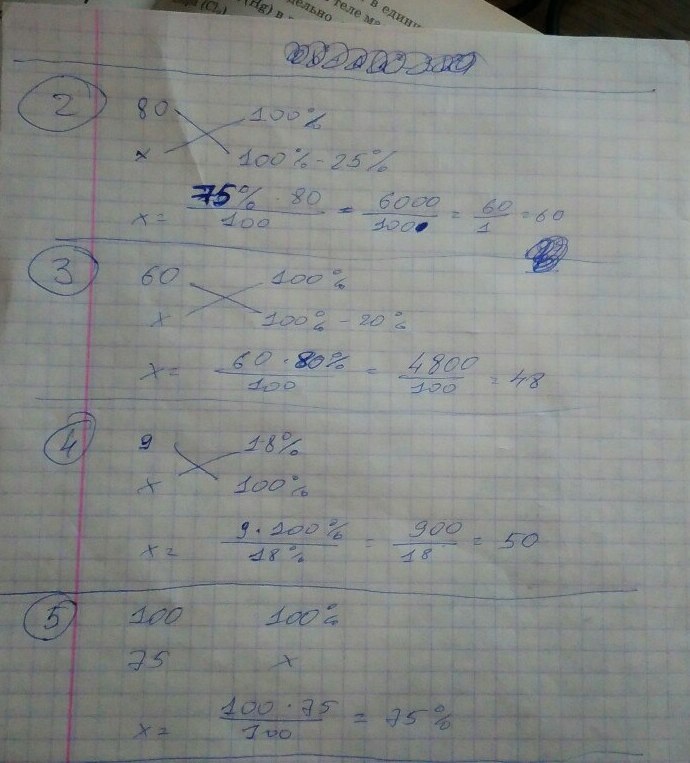 в един
дельно
теле ме
(Hg) в
(Cl)
2
80 100%
x 100% - 25%
x = 75% · 80 / 100 = 6000 / 100 = 60 / 1 = 60
3
60 100%
x 100% - 20%
x = 60 · 80% / 100 = 4800 / 100 = 48
4
9 18%
x 100%
x = 9 · 100% / 18% = 900 / 18 = 50
5
100 100%
75 x
x = 100 · 75 / 100 = 75%